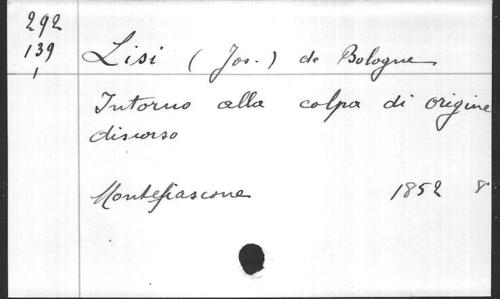 292
139
1
Lisi (Jos.) de Bologne
Intorno alla colpa di origine
discorso
Montefiascone 1852 8°